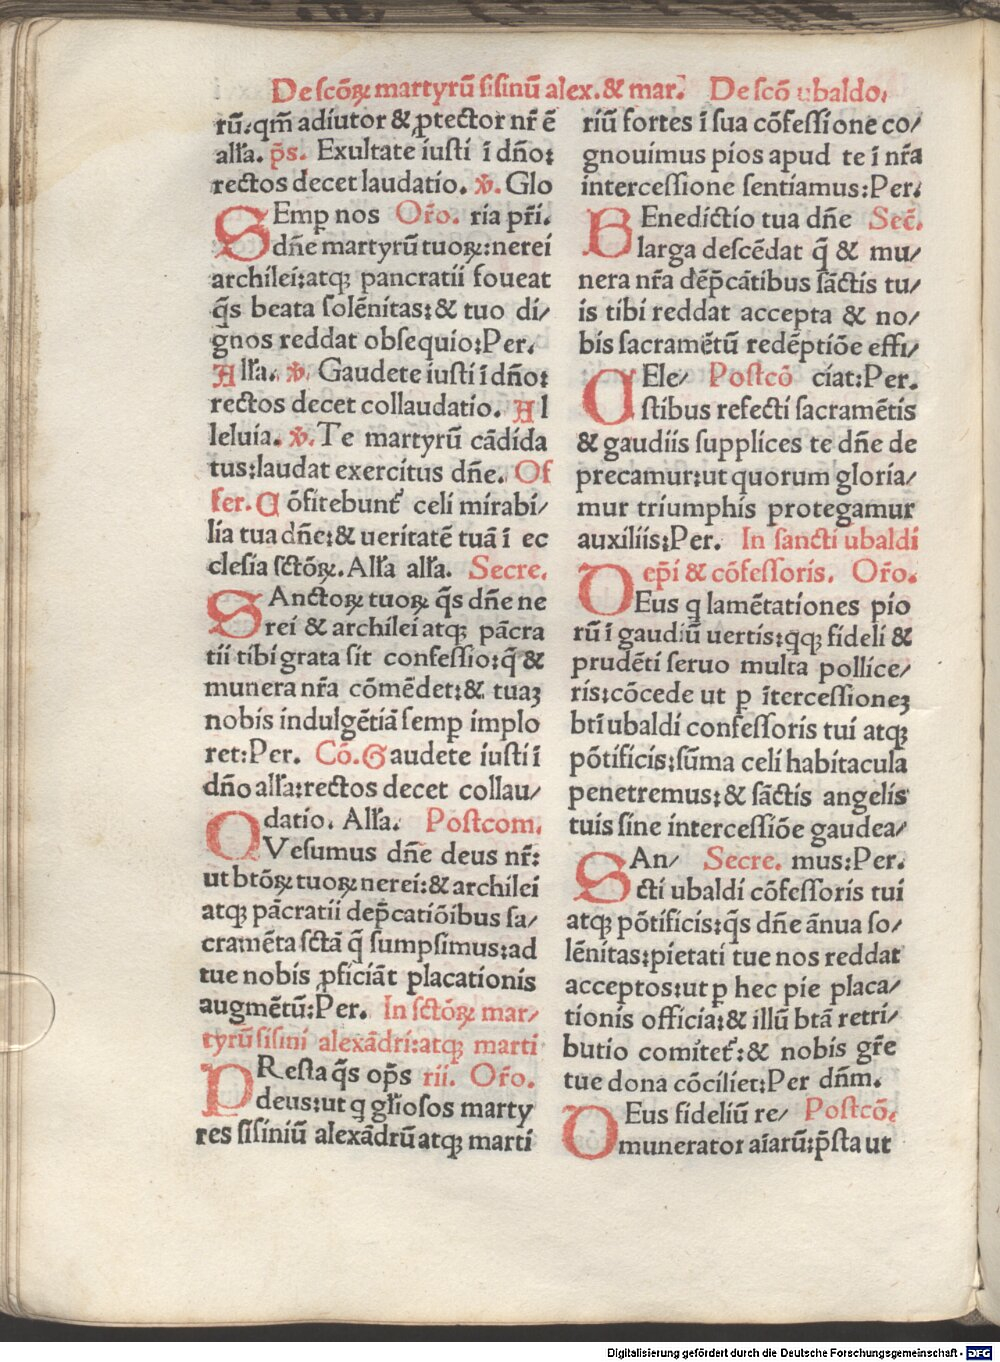 De scōꝝ martyrū sisinū alex. & mar. De scō ubaldo.
rū: qm̄ adiutor & ꝓtector nr̄ ē
all'a. p̄s. Exultate iusti ī dn̄o:
rectos decet laudatio. ℣. Glo
SEmp nos Or̄o. ria pr̄i.
dn̄e martyrū tuoꝝ: nerei
archilei: atqꝫ pancratii foueat
q̄s beata solēnitas: & tuo di/
gnos reddat obsequio: Per.
All'a. ℣. Gaudete iusti ī dn̄o:
rectos decet collaudatio. Al
leluia. ℣. Te martyrū cādida
tus: laudat exercitus dn̄e. Of
fer. Cōfitebunt᷑ celi mirabi/
lia tua dn̄e: & ueritatē tuā ī ec
clesia sctōꝝ. All'a all'a. Secre.
SAnctoꝝ tuoꝝ q̄s dn̄e ne
rei & archilei atqꝫ pācra
tii tibi grata sit confessio: q̄ &
munera nr̄a cōmēdet: & tuaꝫ
nobis indulgētiā semp̱ implo
ret: Per. Cō. Gaudete iusti ī
dn̄o all'a: rectos decet collau/
datio. All'a. Postcom.
QVesumus dn̄e deus nr̄:
ut btōꝝ tuoꝝ nerei: & archilei
atqꝫ pācratii dep̄catiōibus sa/
cramēta sctā q̄ sumpsimus: ad
tue nobis ꝓficiāt placationis
augmētū: Per. In sctōꝝ mar/
tyrū sisini alexādri: atqꝫ marti
PResta q̄s op̄s rii. Or̄o.
deus: ut q gl'iosos marty
res sisiniū alexādrū atqꝫ marti
riū fortes ī sua cōfessione co/
gnouimus pios apud te ī nr̄a
intercessione sentiamus: Per.
BEnedictio tua dn̄e Sec̄.
larga descēdat q̄ & mu/
nera nr̄a dēp̄cātibus sāctis tu/
is tibi reddat accepta & no/
bis sacramētū redēptiōe effi/
CEle/ Postcō ciat: Per.
stibus refecti sacramētis
& gaudiis supplices te dn̄e de
precamur: ut quorum gloria/
mur triumphis protegamur
auxiliis: Per. In sancti ubaldi
ep̄i & cōfessoris. Or̄o.
DEus q lamētationes pio
rū ī gaudiū uertis: qqꝫ fideli &
prudēti seruo multa pollice/
ris: cōcede ut ꝑ ītercessioneꝫ
bti ubaldi confessoris tui atqꝫ
pōtificis: sūma celi habitacula
penetremus: & sāctis angelis
tuis sine intercessiōe gaudea/
SAn/ Secre. mus: Per.
cti ubaldi cōfessoris tui
atqꝫ pōtificis: q̄s dn̄e ānua so/
lēnitas: pietati tue nos reddat
acceptos: ut ꝑ hec pie placa/
tionis officia: & illū btā retri/
butio comitet᷑: & nobis gr̄e
tue dona cōciliet: Per dn̄m.
DEus fideliū re/ Postcō.
munerator aīarū: p̄sta ut
Digitalisierung gefördert durch die Deutsche Forschungsgemeinschaft - DFG